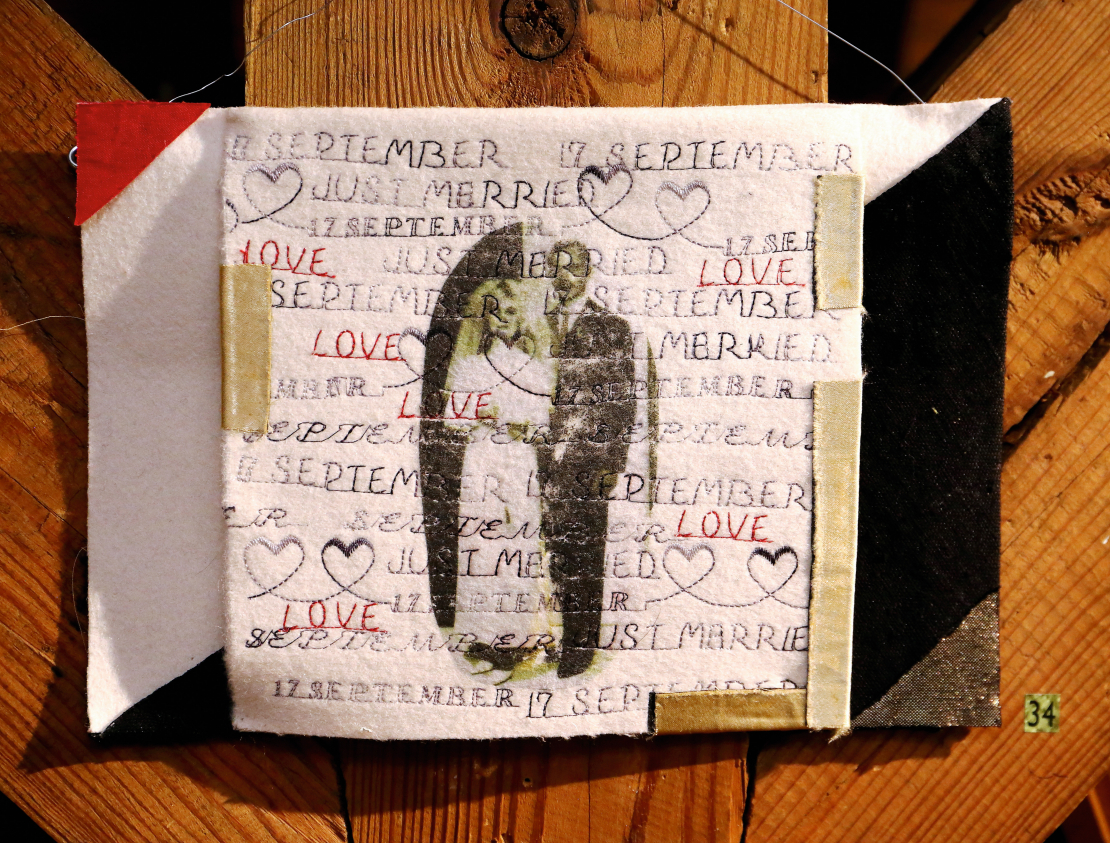 17 SEPTEMBER 17 SEPTEMBER
JUST MARRIED
17 SEPTEMBER 17 SEP
LOVE JUST MARRIED LOVE
SEPTEMBER 17 SEPTEMBER
LOVE JUST MARRIED
MBER 17 SEPTEMBER
LOVE
SEPTEMBER SEPTEM
17 SEPTEMBER 17 SEPTEMBER
ER SEPTEMBER LOVE
JUST MARRIED
LOVE 17 SEPTEMBER
SEPTEMBER JUST MARRIE
17 SEPTEMBER 17 SEP
34